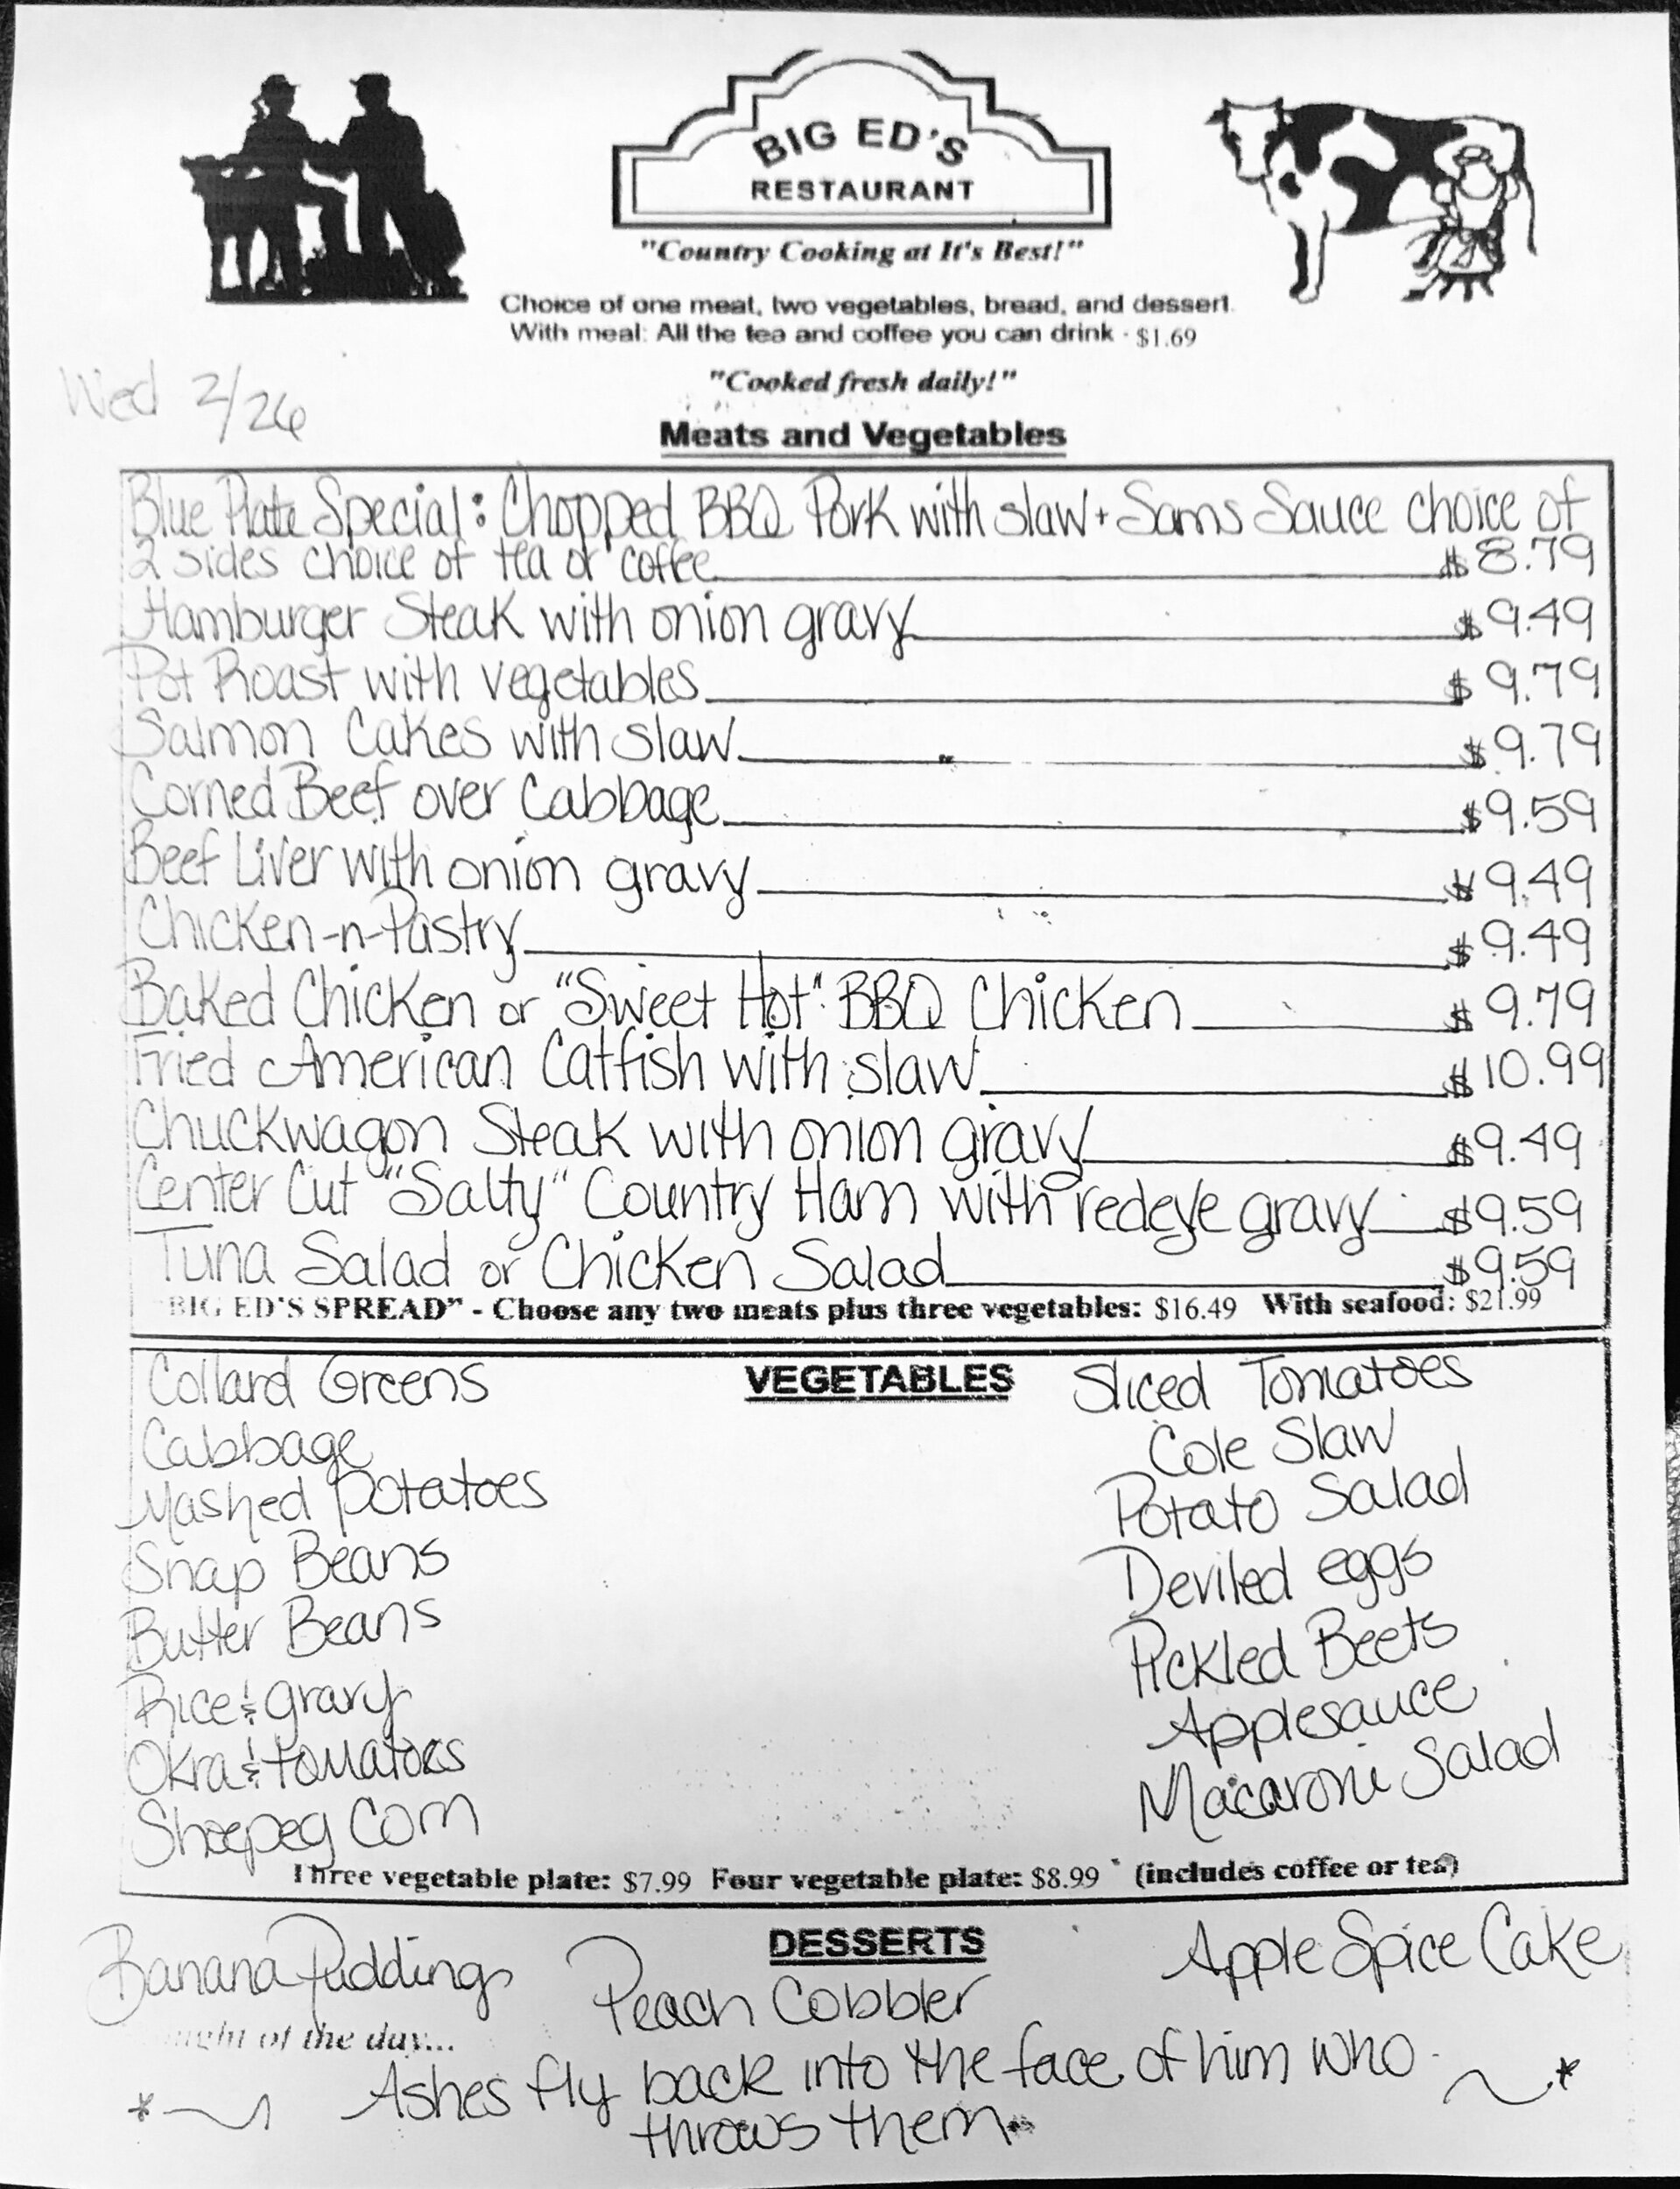 BIG ED'S
RESTAURANT
"Country Cooking at It's Best!"
Choice of one meat, two vegetables, bread, and dessert.
With meal: All the tea and coffee you can drink - $1.69
Wed 2/26
"Cooked fresh daily!"
Meats and Vegetables
Blue Plate Special: Chopped BBQ Pork with slaw + Sams Sauce choice of
2 sides choice of tea or coffee $8.79
Hamburger Steak with onion gravy $9.49
Pot Roast with vegetables $9.79
Salmon Cakes with slaw $9.79
Corned Beef over Cabbage $9.59
Beef Liver with onion gravy $9.49
Chicken-n-Pastry $9.49
Baked Chicken or "Sweet Hot" BBQ Chicken $9.79
Fried American Catfish with slaw $10.99
Chuckwagon Steak with onion gravy $9.49
Center Cut "Salty" Country Ham with redeye gravy $9.59
Tuna Salad or Chicken Salad $9.59
"BIG ED'S SPREAD" - Choose any two meats plus three vegetables: $16.49 With seafood: $21.99
VEGETABLES
Collard Greens
Cabbage
Mashed Potatoes
Snap Beans
Butter Beans
Rice & gravy
Okra & tomatoes
Shoepeg Corn
Sliced Tomatoes
Cole Slaw
Potato Salad
Deviled eggs
Pickled Beets
Applesauce
Macaroni Salad
Three vegetable plate: $7.99 Four vegetable plate: $8.99 (includes coffee or tea)
DESSERTS
Banana Pudding Peach Cobbler Apple Spice Cake
of the day...
Ashes fly back into the face of him who
throws them.